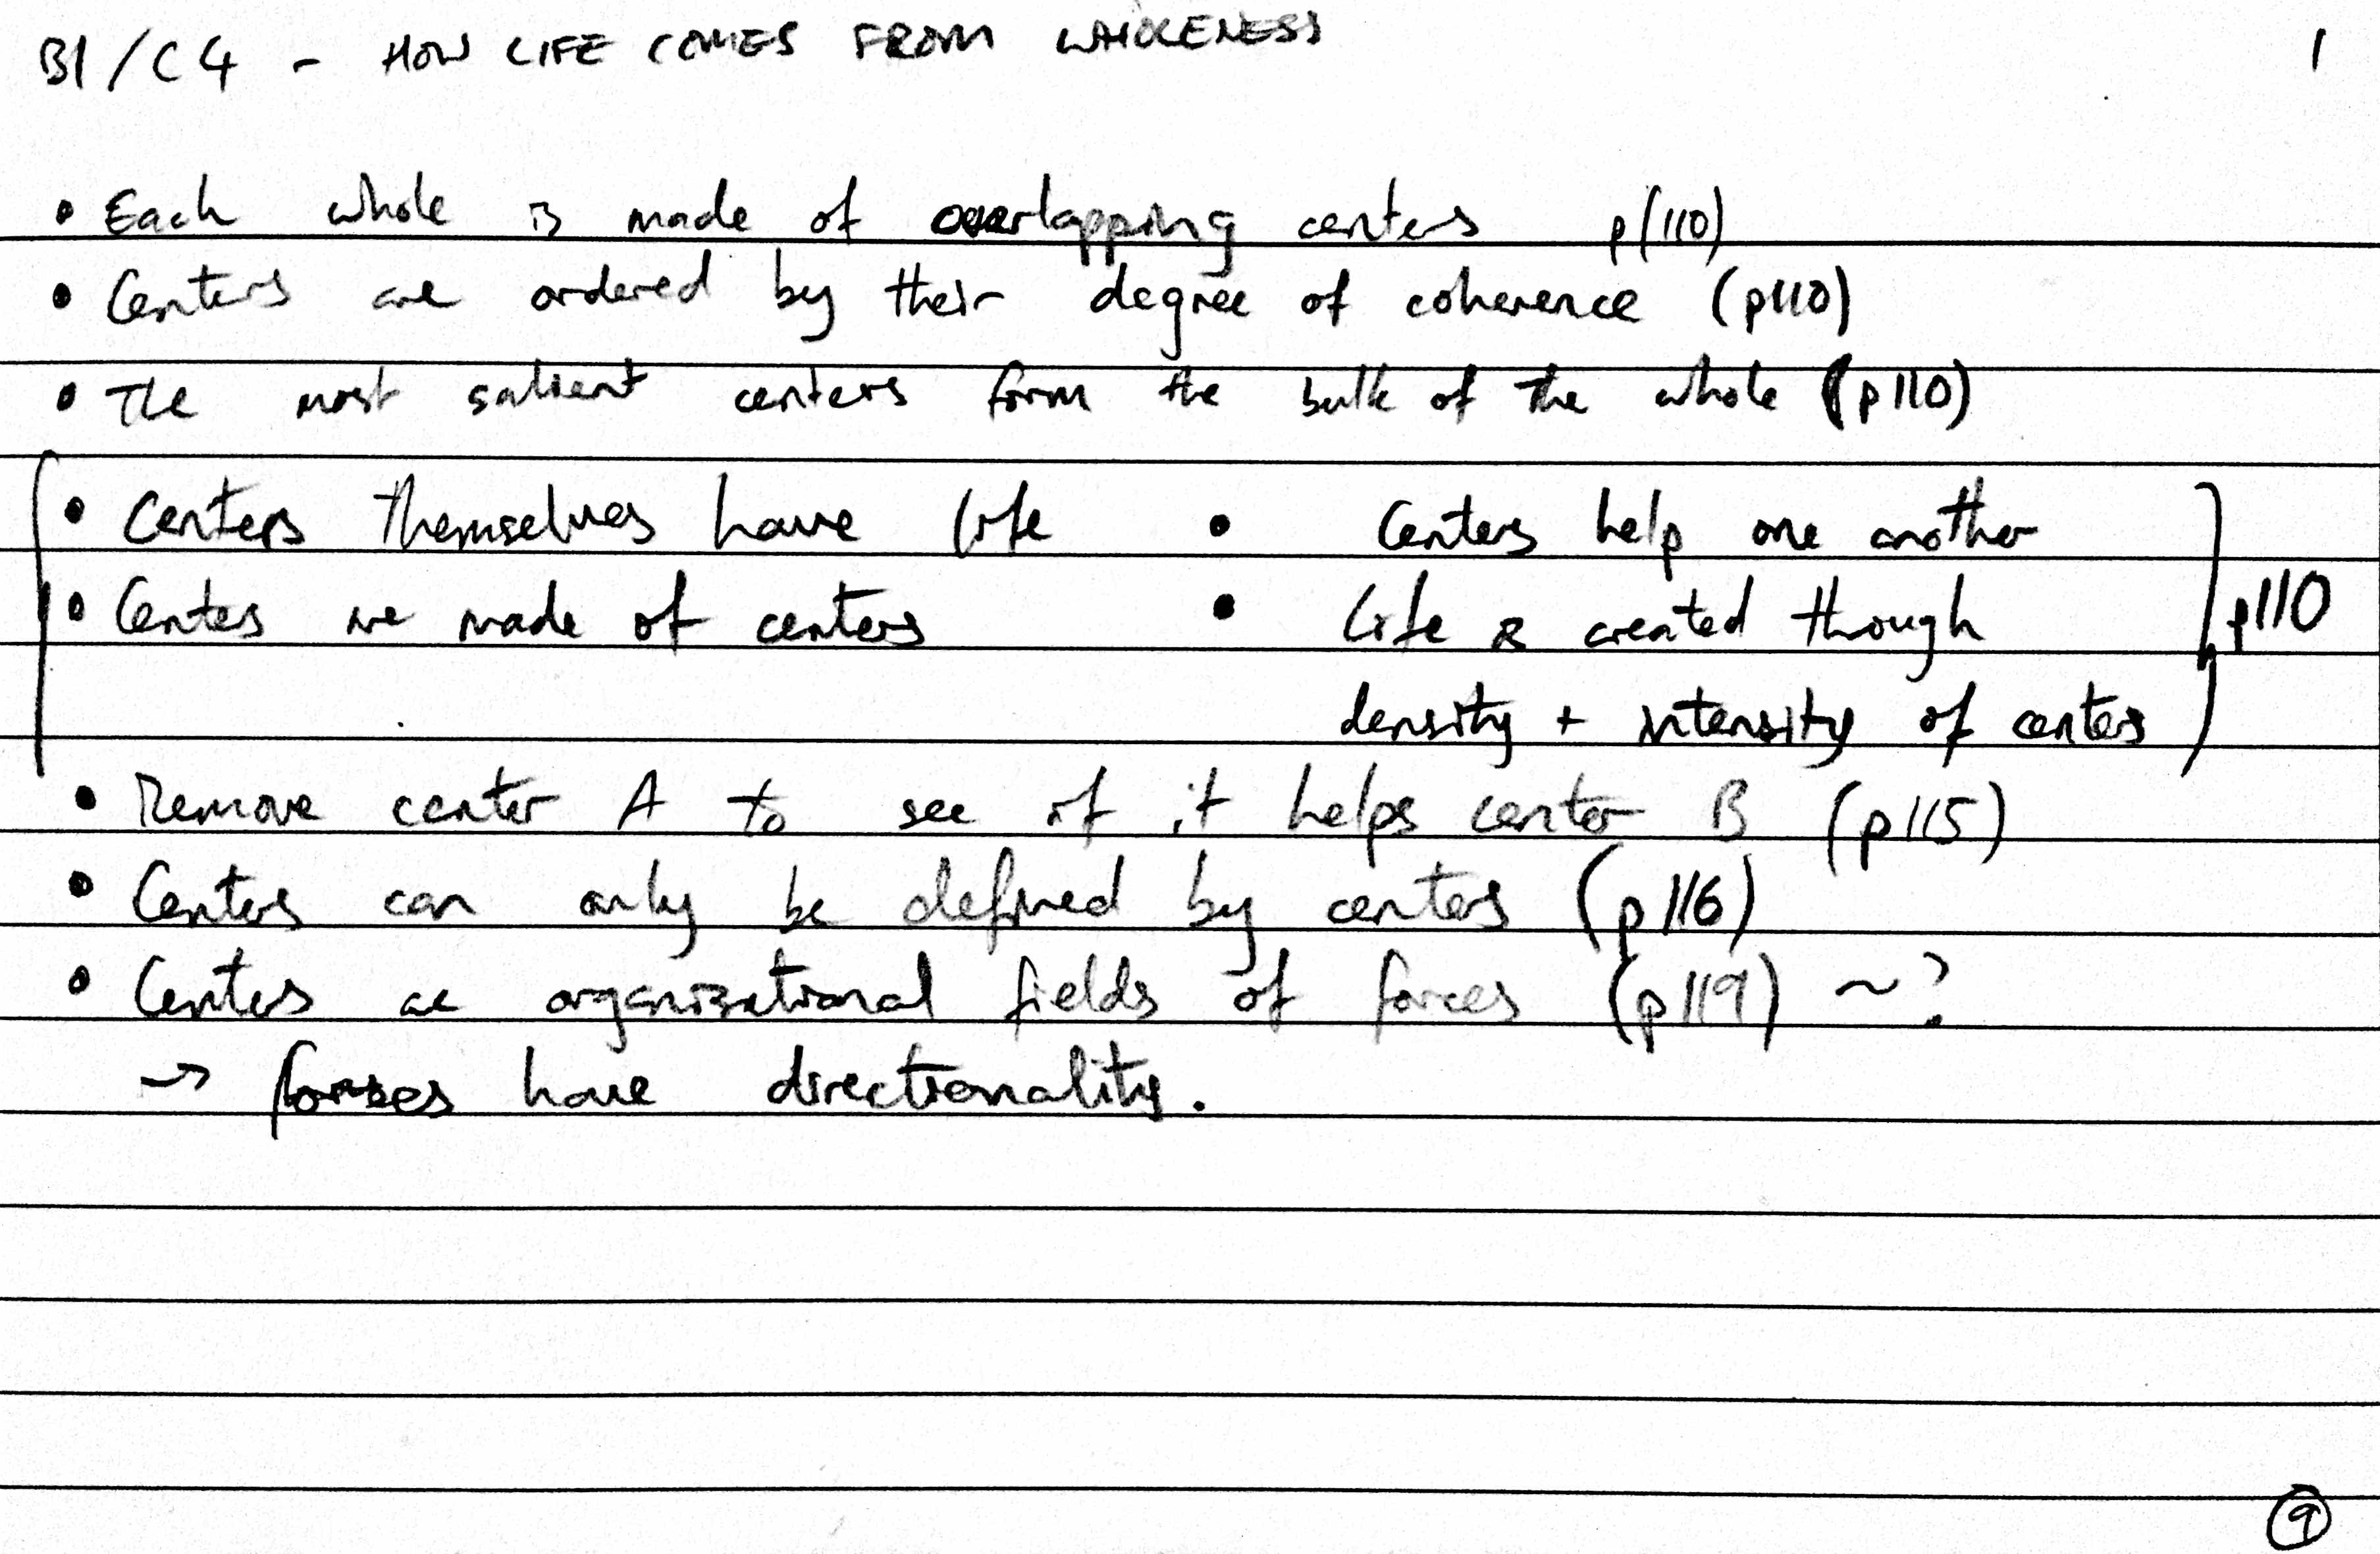 B1/C4 - HOW LIFE COMES FROM WHOLENESS 1
• Each whole is made of overlapping centers p(110)
• Centers are ordered by their degree of coherence (p110)
• The most salient centers form the bulk of the whole (p110)
• Centers themselves have life • Centers help one another
• Centers are made of centers • Life is created through p110
density + intensity of centers
• Remove center A to see if it helps center B (p115)
• Centers can only be defined by centers (p116)
• Centers are organizational fields of forces (p119) ~?
→ forces have directionality.
9